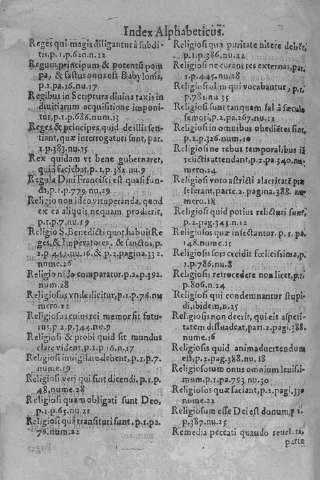 Index Alphabeticus.
Reges qui magis diligantur à subdi-
tis, p.1. p.620.n.12
Regum principum & potentũ pom
pa, & fastus onus est Babylonis,
p.2. pa.16. nu.17
Regibus in Scriptura diuina taxis in
diuitiarum acquisitione imponi-
tur, p.1. p.686. num.13
Reges & principes, quid de illis senti-
tiant, quæ interrogatus sunt, par.
p.383. nu.15
Rex quidam vt bene gubernaret,
quid faciebat, p.1. p.381. nu.9
Regula Diui Francisci est quasi fun-
da, p.1. p.779. nu.29
Religio non ideo vituperanda, quod
ex ea aliquis nequam prodierit,
p.1. p.7. nu.19
Religio S. Benedicti quot habuit Re
ges, & Imperatores, & sanctos, p.
2. p. nu.16. & p.2. pagina 332.
nume.26
Religio nido comparatur. p.2. p.192.
num.28
Religiosus vnde dicitur, p.1. p.78. nu
mero.22
Religiosus cuius rei memor sit futu-
rus, p.2. p.344. nu.9
Religiosi & probi quid sit mundus
clare vident, p.2. p.16. n.17
Religiosi inuigilare debent, p.1. p.7.
nume.19
Religiosi veri qui sint dicendi. p.1. p.
48. nume.28
Religiosi quam obligati sunt Deo,
p.1. p.65. nu.21
Religiosi qua transituri sunt, p.1. pa.
78. num.22
Religiosi qua puritate niterẽ debẽt,
p.1. p.386. nu.22
Religiosi ne curent res externas, par.
2. p.445. nu.18
Religiosi soli in qui vocabuntur, p.
p.781. nu.35
Religiosi sunt tanquam sal à sæculo
semoti, p.2. pa.267. nu.21
Religiosi in omnibus obediẽtes sint,
p.2. p.346. num.10
Religiosi ne rebus temporalibus iã
relictis attendant, p.2. pa.340. nu-
mero.24
Religiosi voto astricti alacritatẽ præ
seferant, parte.2. pagina.388. nu-
mero.18
Religiosi quid potius relicturi sunt,
p.2. pag.343. nu.12
Religiosos quæ infectantur. p.1. pa.
148. nume.21
Religiosi scri cecidit fœlicissima, p.
p.786. nu.8
Religiosi retrocedere non licet, p.1.
p.806. n.24
Religiosi qui condemnantur stupi-
di, ibidem, n.25
Religiosis non decit, qui eis asperi-
tatem dissuadeat, pari.2. pag.388.
nume.16
Religiosis quid animaduertendum
est, p.2. pag.388. nu.18
Religiosorum onus omnium leuissi-
mum, p.1. pa.793. nu.30
Religiosos quæ faciant, p.2. pag.330
nume.25
Religiosum esse Dei est donum, p.1.
p.387. nu.25
Remedia peccati quando reuel. ta,
parte